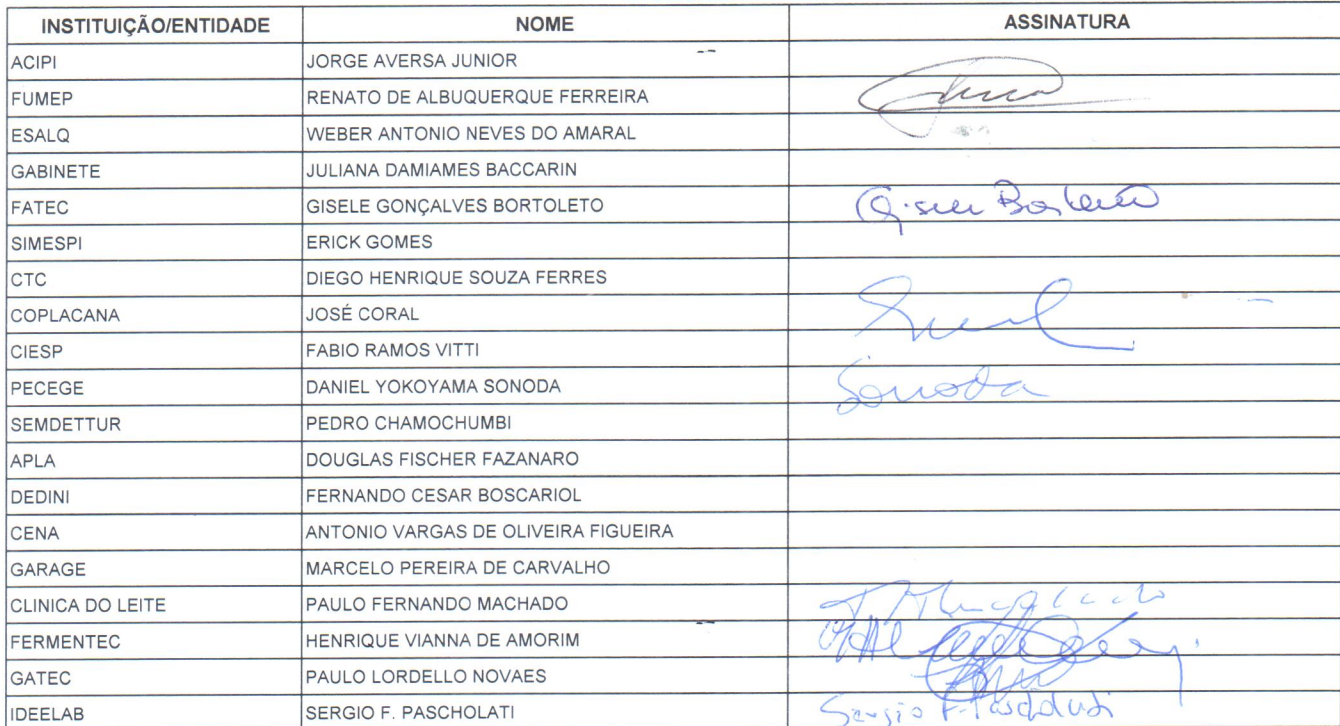 INSTITUIÇÃO/ENTIDADE NOME ASSINATURA
ACIPI JORGE AVERSA JUNIOR
FUMEP RENATO DE ALBUQUERQUE FERREIRA
ESALQ WEBER ANTONIO NEVES DO AMARAL
GABINETE JULIANA DAMIAMES BACCARIN
FATEC GISELE GONÇALVES BORTOLETO
SIMESPI ERICK GOMES
CTC DIEGO HENRIQUE SOUZA FERRES
COPLACANA JOSÉ CORAL
CIESP FABIO RAMOS VITTI
PECEGE DANIEL YOKOYAMA SONODA Sonoda
SEMDETTUR PEDRO CHAMOCHUMBI
APLA DOUGLAS FISCHER FAZANARO
DEDINI FERNANDO CESAR BOSCARIOL
CENA ANTONIO VARGAS DE OLIVEIRA FIGUEIRA
GARAGE MARCELO PEREIRA DE CARVALHO
CLINICA DO LEITE PAULO FERNANDO MACHADO
FERMENTEC HENRIQUE VIANNA DE AMORIM
GATEC PAULO LORDELLO NOVAES
IDEELAB SERGIO F. PASCHOLATI Sergio F. Pascholati